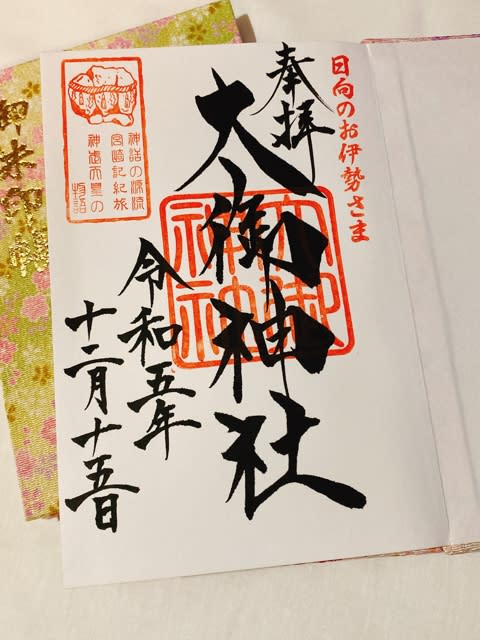 日向のお伊勢さま
奉拝
大御神社
大御
神社
令和五年
十二月十五日
神話の源流
宮崎記紀旅
神武天皇の
物語
御朱印帳